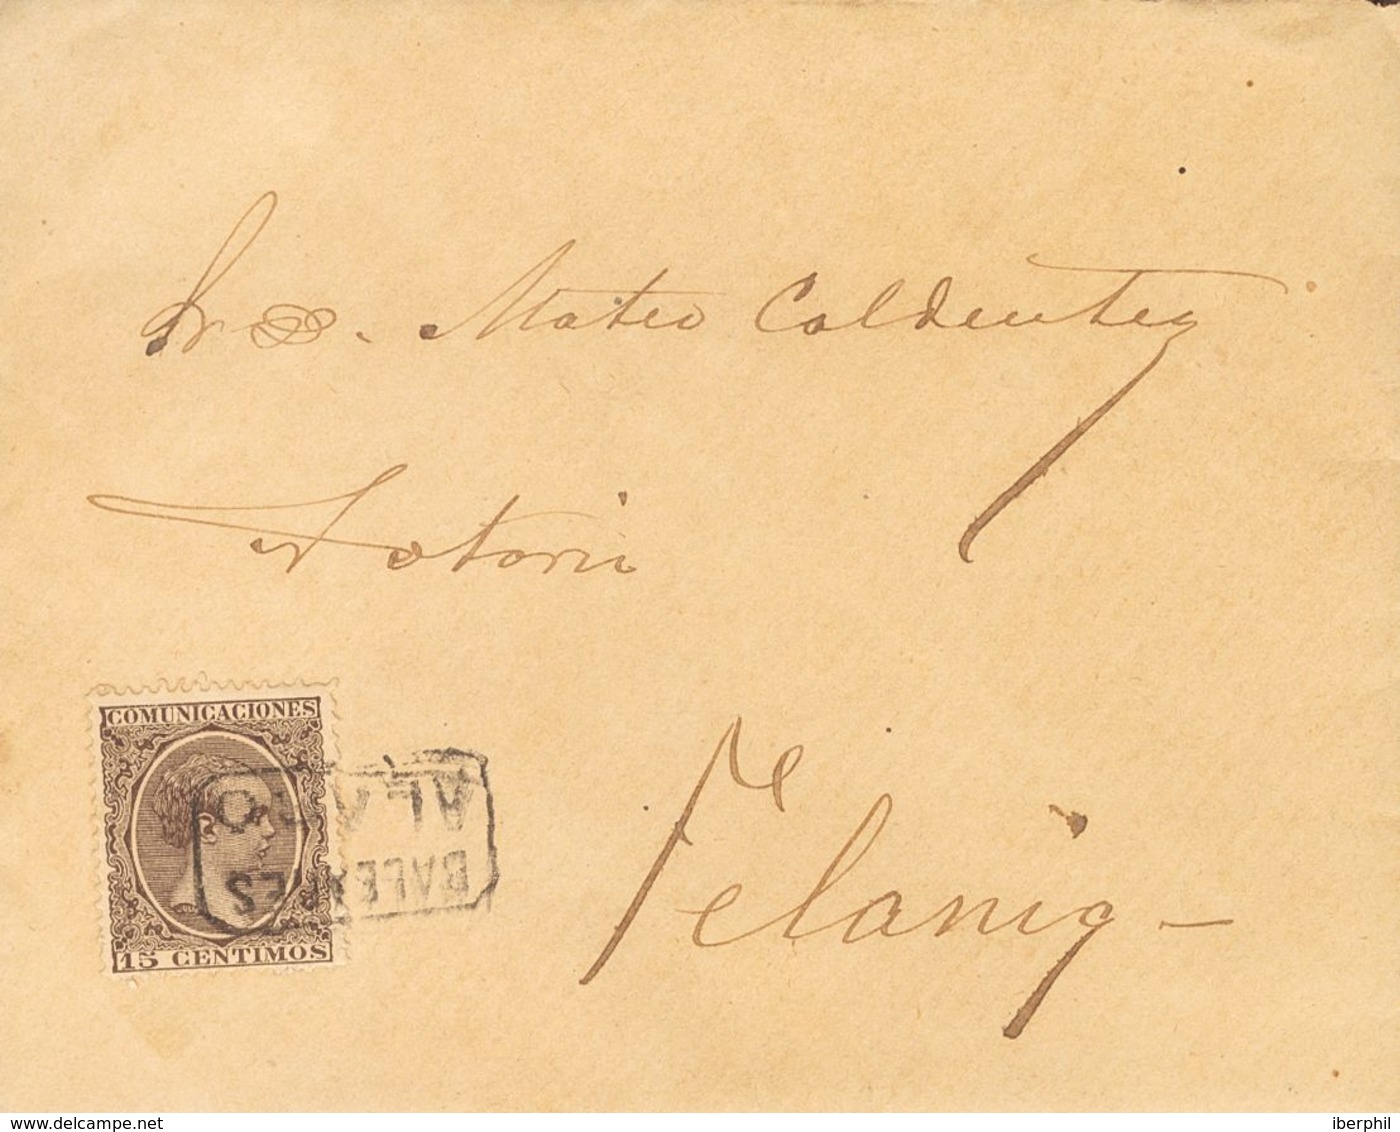 Sr. D. Mateo Caldentey
Notario
Felanig -
COMUNICACIONES
15 CENTIMOS
ALARO
BALEARES
delcampe.net
iberphil